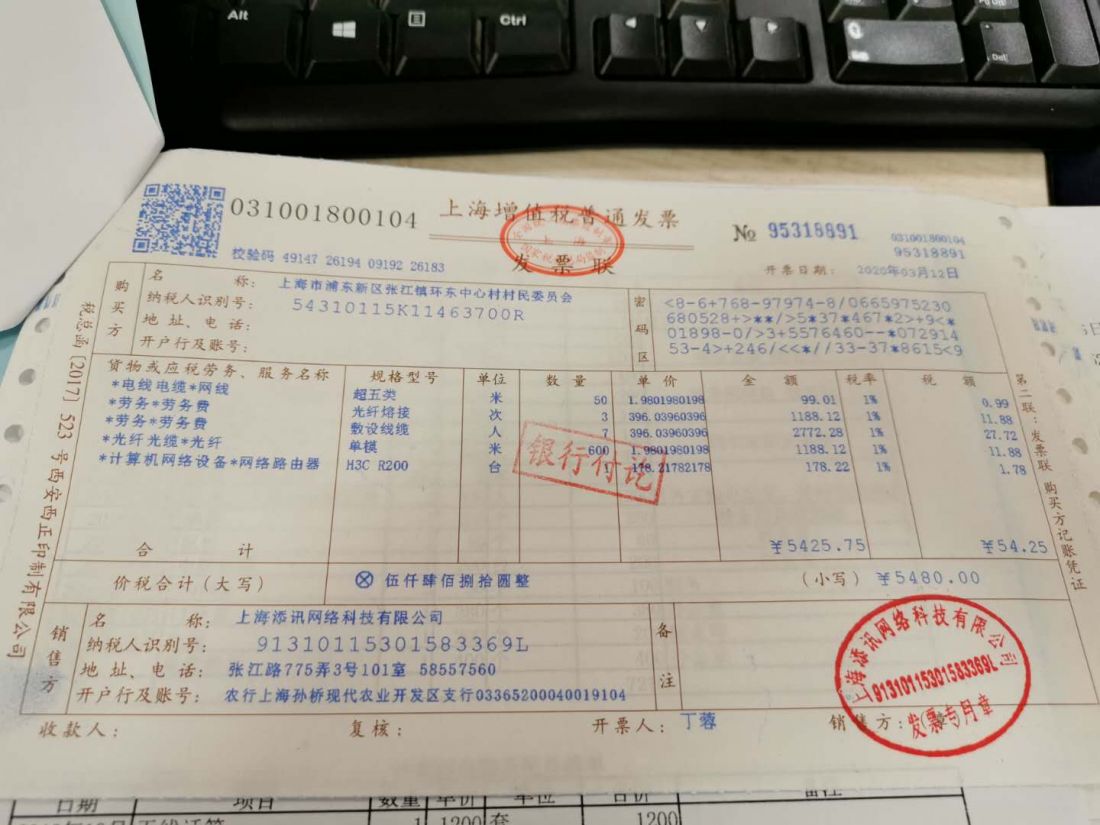 Alt
Ctrl
Del
031001800104
上海增值税普通发票
发票联
№ 95318891
031001800104
95318891
校验码 49147 26194 09192 26183
开票日期: 2020年03月12日
购买方
名 称: 上海市浦东新区张江镇环东中心村村民委员会
纳税人识别号: 54310115K11463700R
地址、电话:
开户行及账号:
密码区
<8-6+768-97974-8/0665975230
680528+>**/>5*37*467*2>+9<*
01898-0/>3+5576460--*072914
53-4>+246/<<*//33-37*8615<9
货物或应税劳务、服务名称 规格型号 单位 数量 单价 金额 税率 税额
*电线电缆*网线 超五类 米 50 1.9801980198 99.01 1% 0.99
*劳务*劳务费 光纤熔接 次 3 396.03960396 1188.12 1% 11.88
*劳务*劳务费 敷设线缆 人 7 396.03960396 2772.28 1% 27.72
*光纤光缆*光纤 单模 米 600 1.9801980198 1188.12 1% 11.88
*计算机网络设备*网络路由器 H3C R200 台 1 178.21782178 178.22 1% 1.78
银行付讫
合计 ¥5425.75 ¥54.25
价税合计(大写) ⊗ 伍仟肆佰捌拾圆整 (小写) ¥5480.00
销售方
名 称: 上海添讯网络科技有限公司
纳税人识别号: 91310115301583369L
地址、电话: 张江路775弄3号101室 58557560
开户行及账号: 农行上海孙桥现代农业开发区支行03365200040019104
备注
收款人: 复核: 开票人: 丁蓉 销售方:(章)
上海添讯网络科技有限公司
91310115301583369L
发票专用章
税总函[2017]523号西安西正印制有限公司
第二联:发票联 购买方记账凭证
日期 项目 数量 单价 单位 合价 备注
1 1200 套 1200